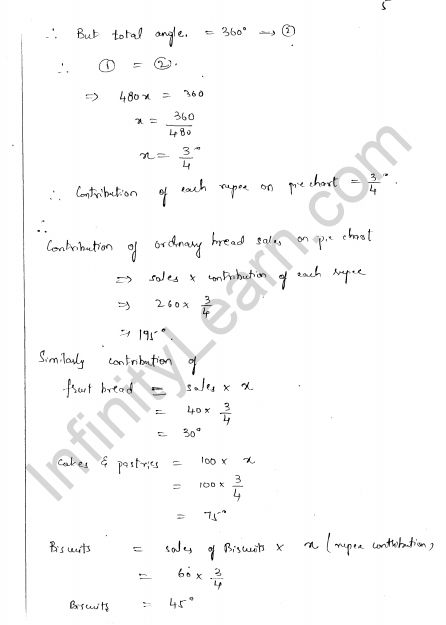 5
∴ But total angle. = 360° → ②
∴ ① = ②.
⇒ 480x = 360
x = 360/480
x = 3/4°
∴ Contribution of each rupee on pie chart = 3/4°.
∴
Contribution of ordinary bread sales on pie chart
⇒ sales × contribution of each rupee
⇒ 260 × 3/4
⇒ 195°.
Similarly contribution of
fruit bread = sales × x
= 40 × 3/4
= 30°
Cakes & pastries = 100 × x
= 100 × 3/4
= 75°
Biscuits = sales of Biscuits × x (rupee contribution)
= 60 × 3/4
Biscuits = 45°
InfinityLearn.com